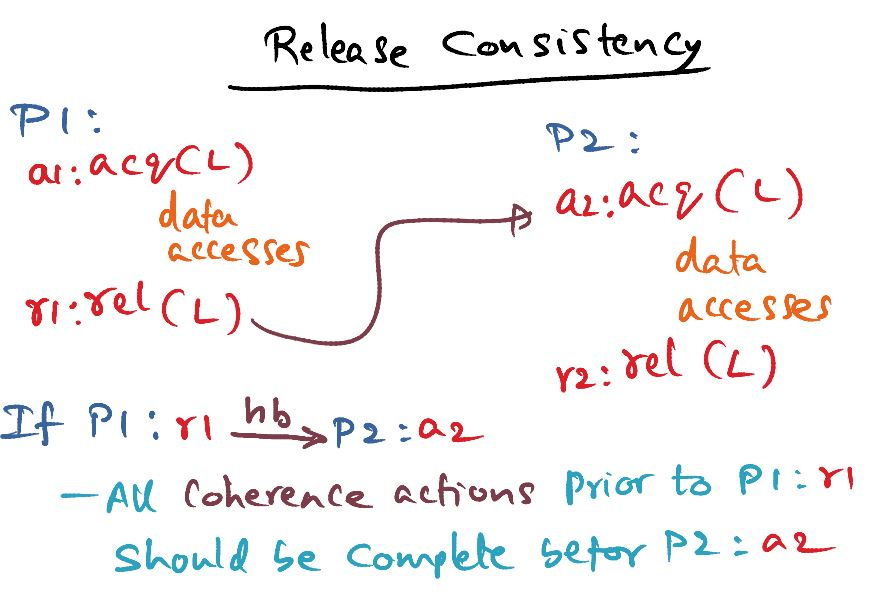 Release Consistency
P1:
a1: acq(L)
data
accesses
r1: rel(L)
P2:
a2: acq(L)
data
accesses
r2: rel(L)
If P1: r1 hb P2: a2
— All Coherence actions Prior to P1: r1
Should be Complete befor P2: a2